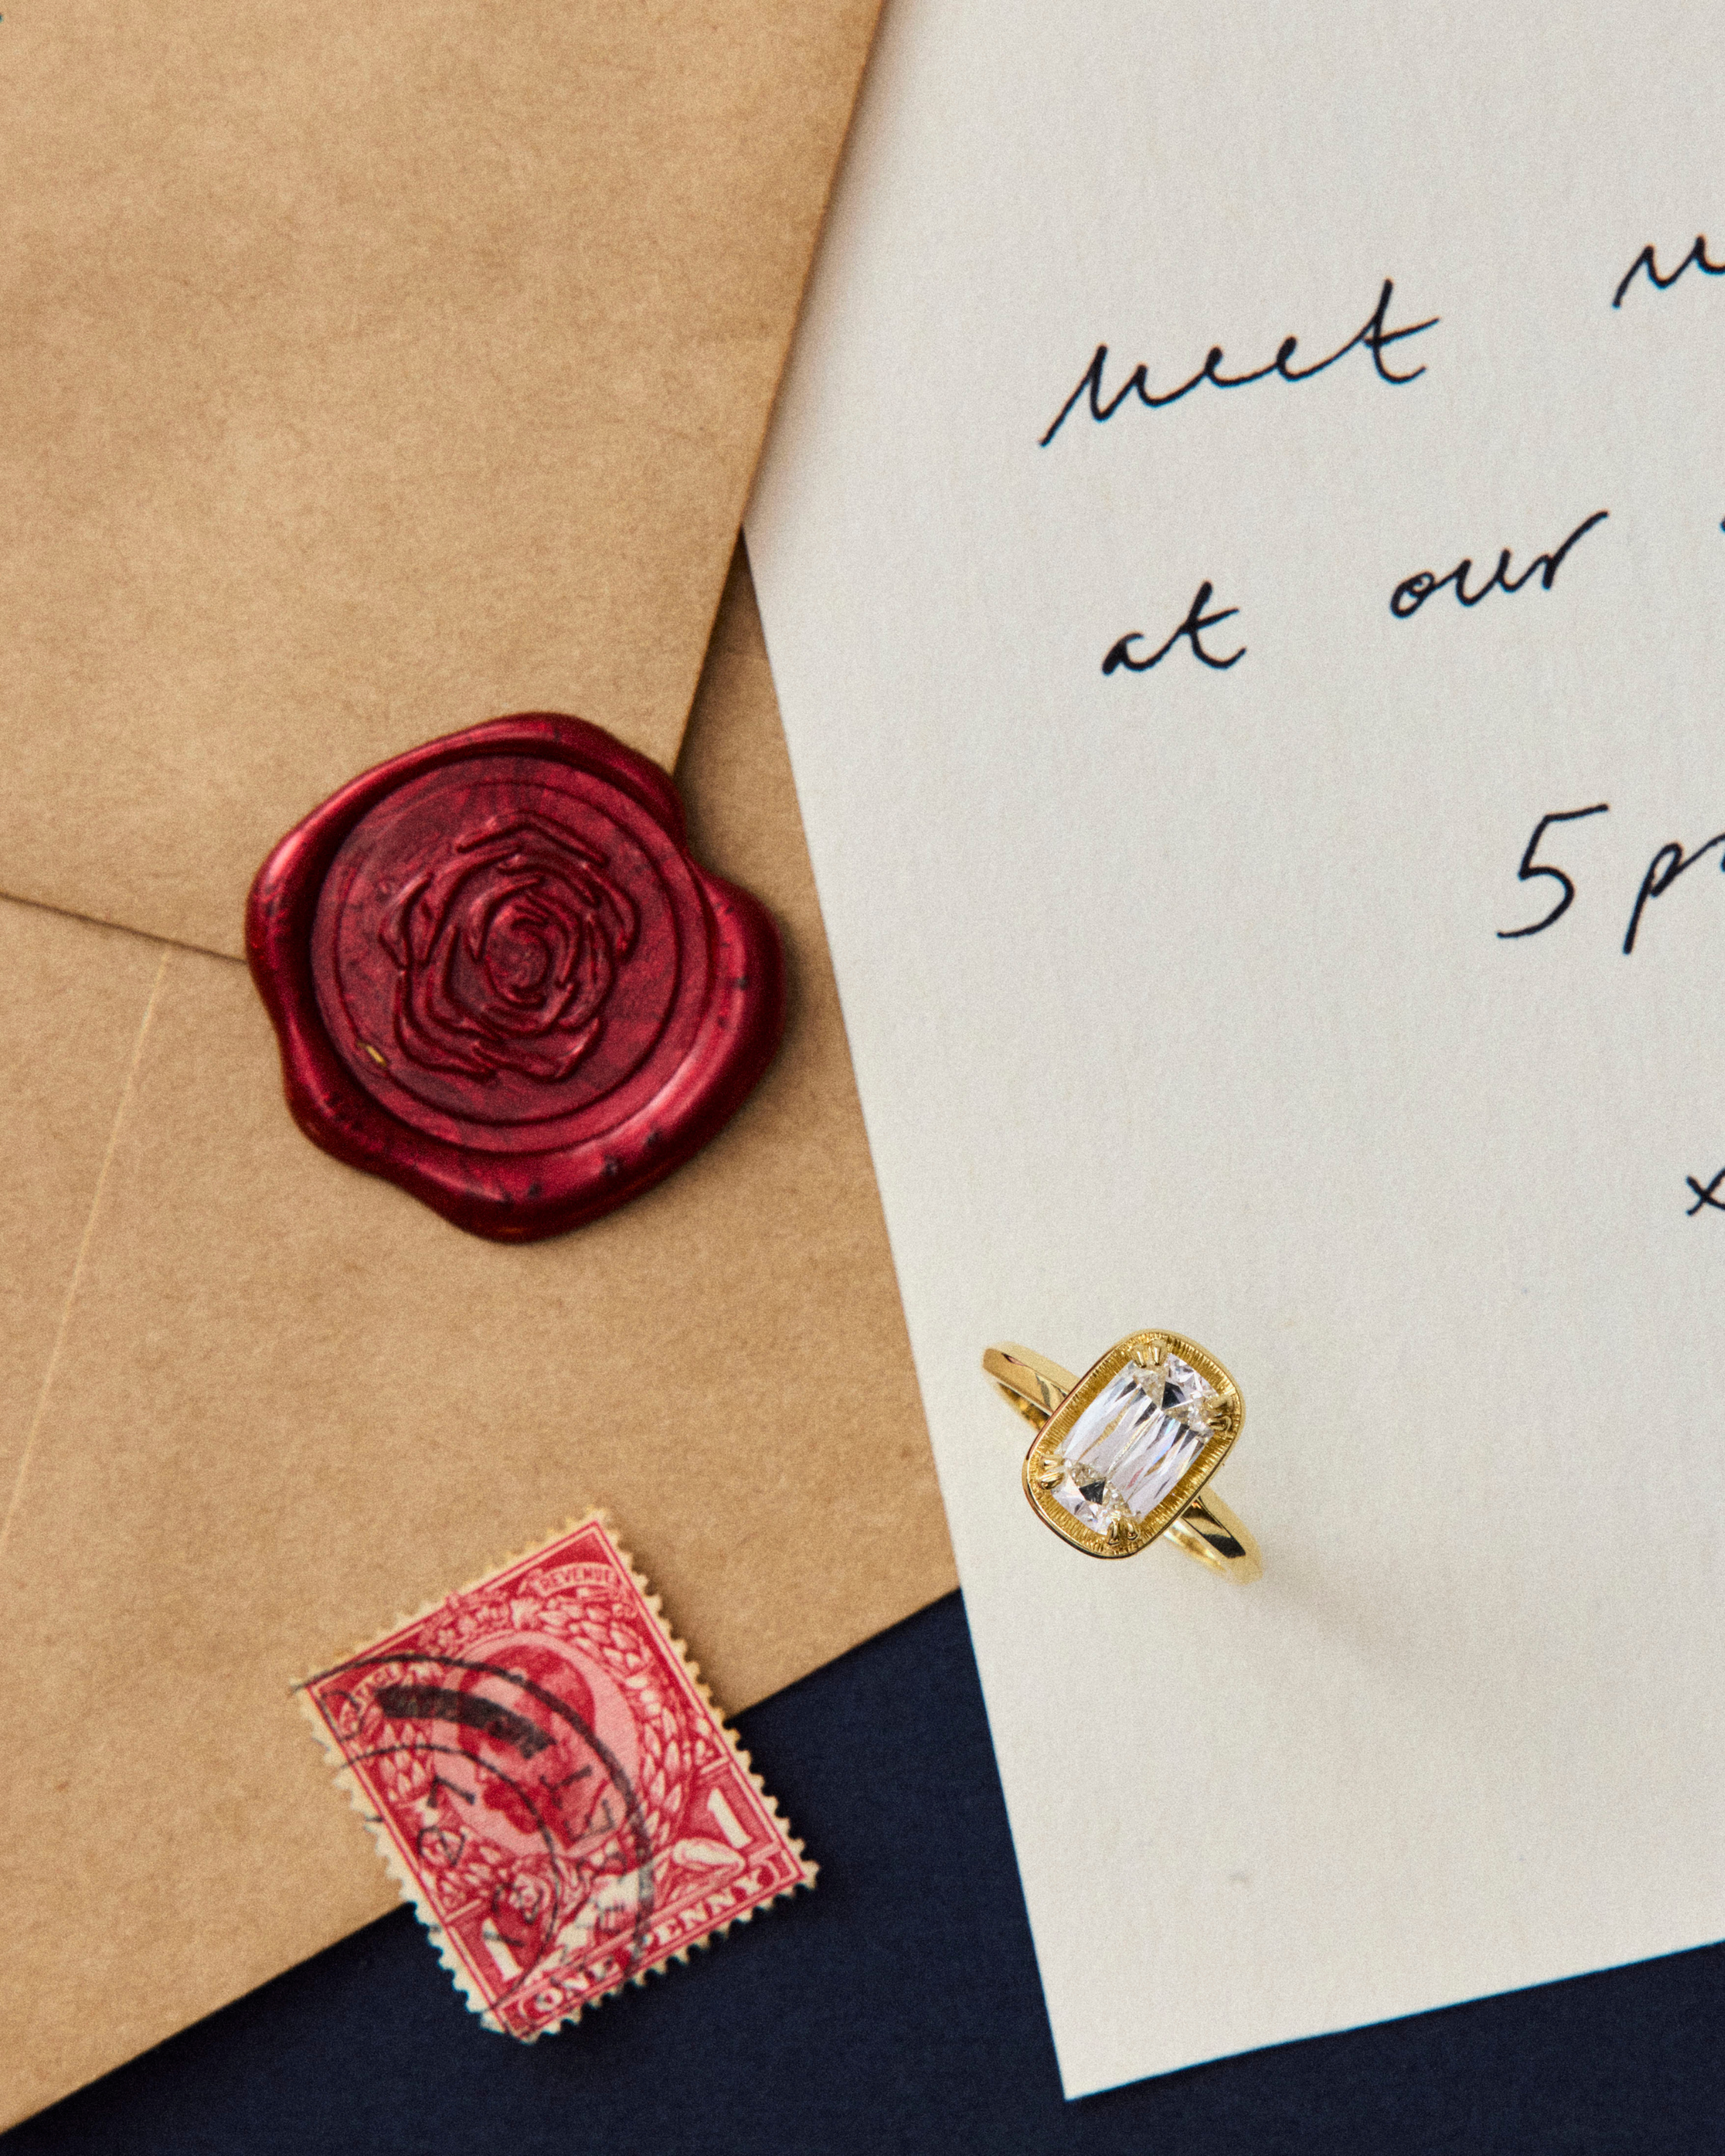 meet
at our
5 p
x
REVENUE
1 1
ONE PENNY